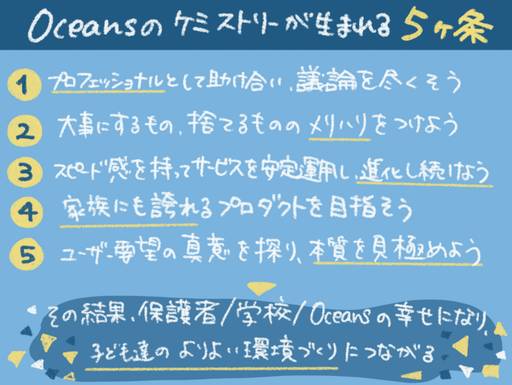 Oceansの ケミストリーが生まれる 5ヶ条
1 プロフェッショナルとして助け合い、議論を尽くそう
2 大事にするもの、捨てるものの メリハリをつけよう
3 スピード感を持ってサービスを安定運用し、進化し続けよう
4 家族にも誇れるプロダクトを目指そう
5 ユーザー要望の真意を探り、本質を見極めよう
その結果、保護者/学校/Oceansの幸せになり、
子ども達の よりよい環境づくりにつながる